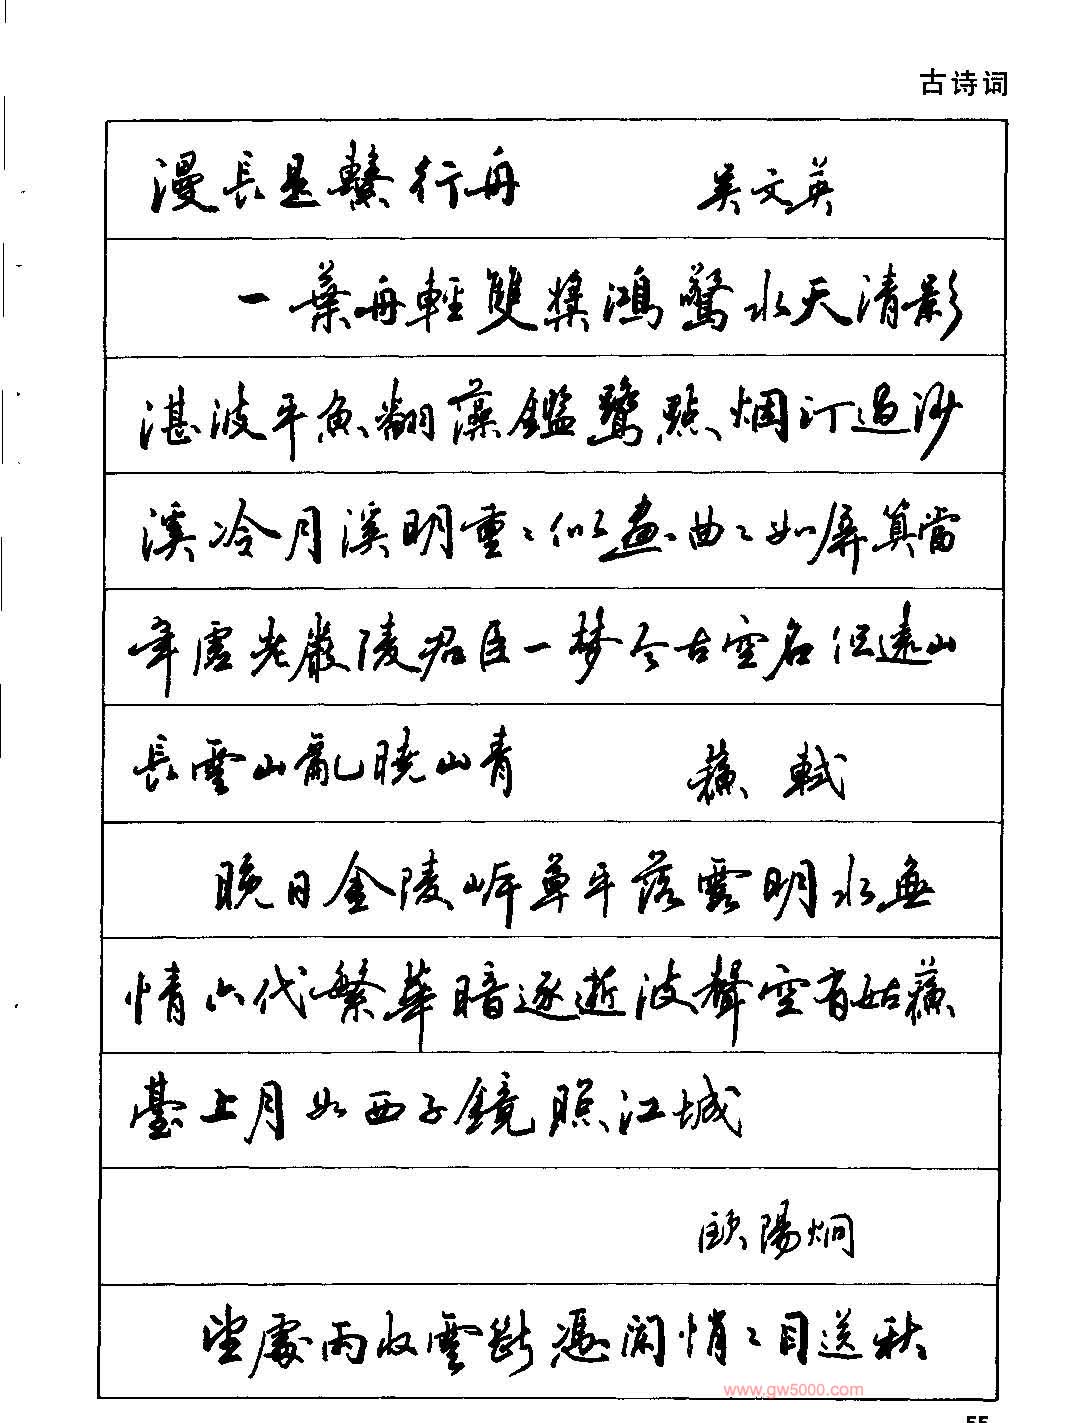 古诗词
漫長是繫行舟 吳文英
一葉舟輕雙槳鴻驚水天清影
湛波平魚翻藻鑑鷺點烟汀過沙
溪冷月溪明重〻似畫曲〻如屏算當
年虛老嚴陵君臣一梦今古空名但遠山
長雲山亂曉山青 蘇軾
晚日金陵岸草平落霞明水無
情六代繁華暗逐逝波聲空有姑蘇
臺上月如西子鏡照江城
歐陽炯
望處雨收雲斷憑闌悄〻目送秋
www.gw5000.com
55